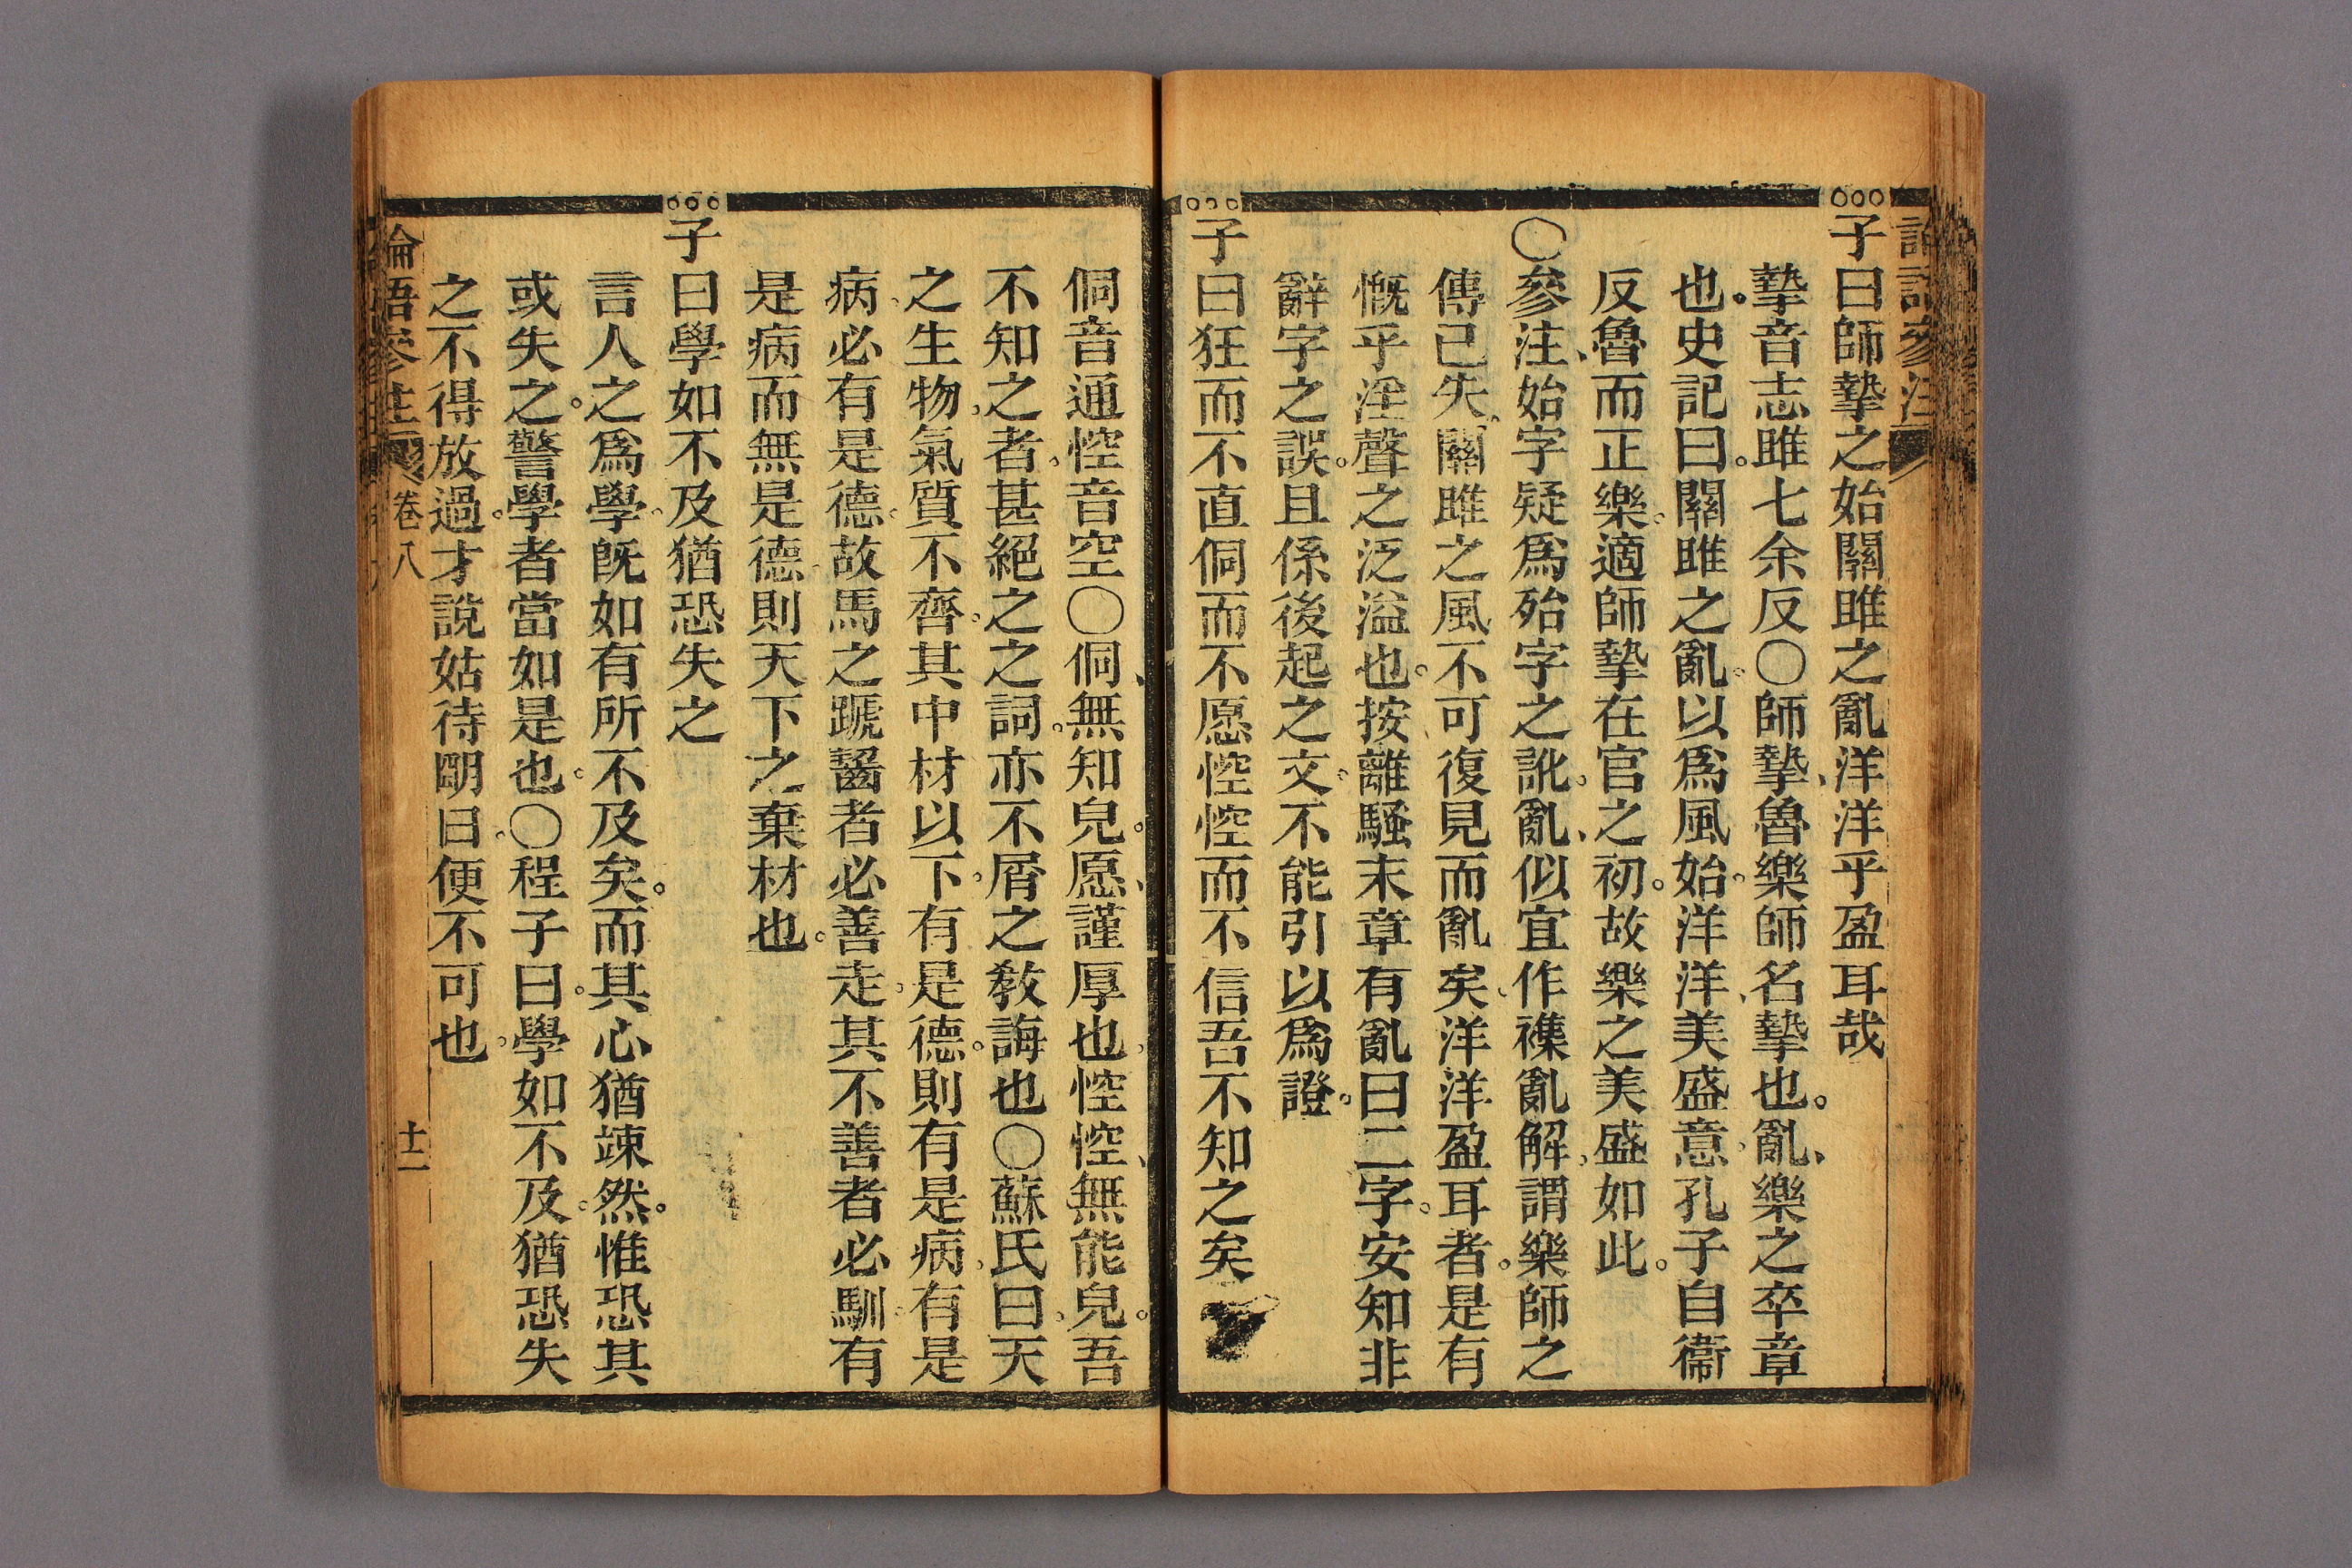 論語參注
子曰師摯之始關雎之亂洋洋乎盈耳哉
摯音志雎七余反〇師摯、魯樂師名摯也。亂、樂之卒章
也。史記曰。關雎之亂。以爲風始。洋洋、美盛意。孔子自衞
反魯而正樂。適師摯在官之初。故樂之美盛如此。
〇參注、始字疑爲殆字之訛。亂、似宜作襍亂解。謂樂師之
傳已失。關雎之風不可復見而亂矣。洋洋盈耳者。是有
慨乎淫聲之泛溢也。按離騷末章有亂曰二字。安知非
辭字之誤。且係後起之文。不能引以爲證。
子曰狂而不直侗而不愿悾悾而不信吾不知之矣
侗音通悾音空〇侗、無知皃。愿、謹厚也。悾悾、無能皃。吾
不知之者。甚絕之之詞。亦不屑之敎誨也〇蘇氏曰。天
之生物。氣質不齊。其中材以下。有是德。則有是病。有是
病。必有是德。故馬之蹏齧者必善走。其不善者必馴。有
是病而無是德。則天下之棄材也。
子曰學如不及猶恐失之
言人之爲學。旣如有所不及矣。而其心猶竦然。惟恐其
或失之。警學者當如是也。〇程子曰。學如不及。猶恐失
之。不得放過。才說姑待明日。便不可也。
論語參注 卷八 十二